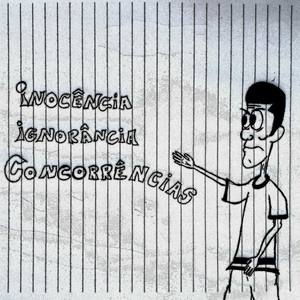 INOCÊNCIA
IGNORÂNCIA
CONCORRÊNCIAS